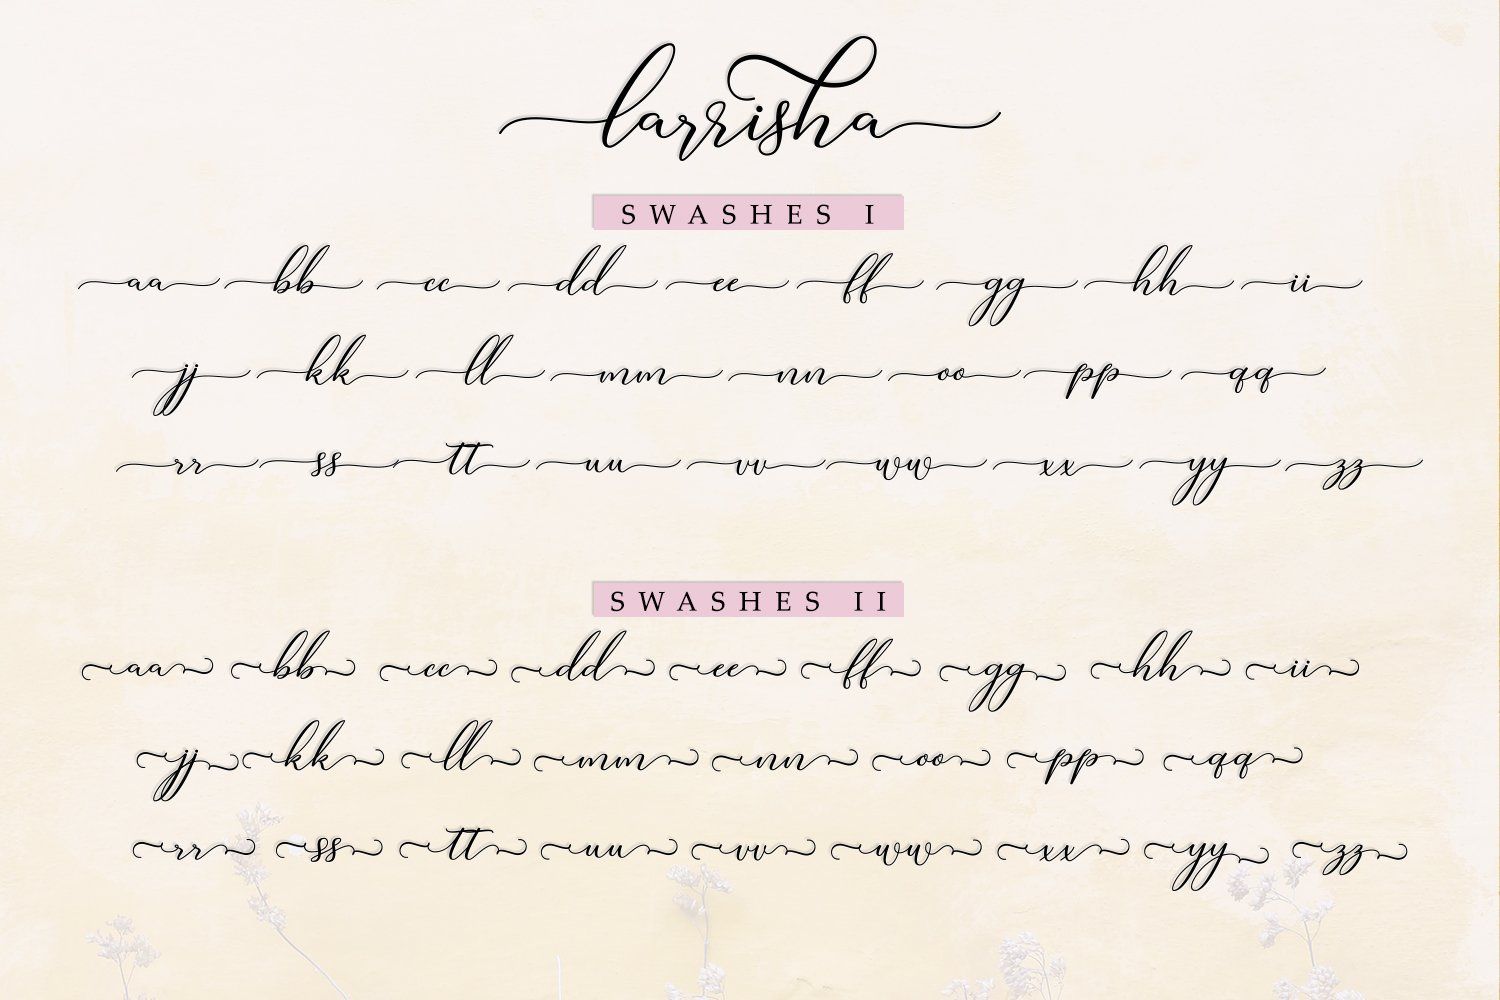 larrisha
SWASHES I
aa bb cc dd ee ff gg hh ii
jj kk ll mm nn oo pp qq
rr ss tt uu vv ww xx yy zz
SWASHES II
aa bb cc dd ee ff gg hh ii
jj kk ll mm nn oo pp qq
rr ss tt uu vv ww xx yy zz